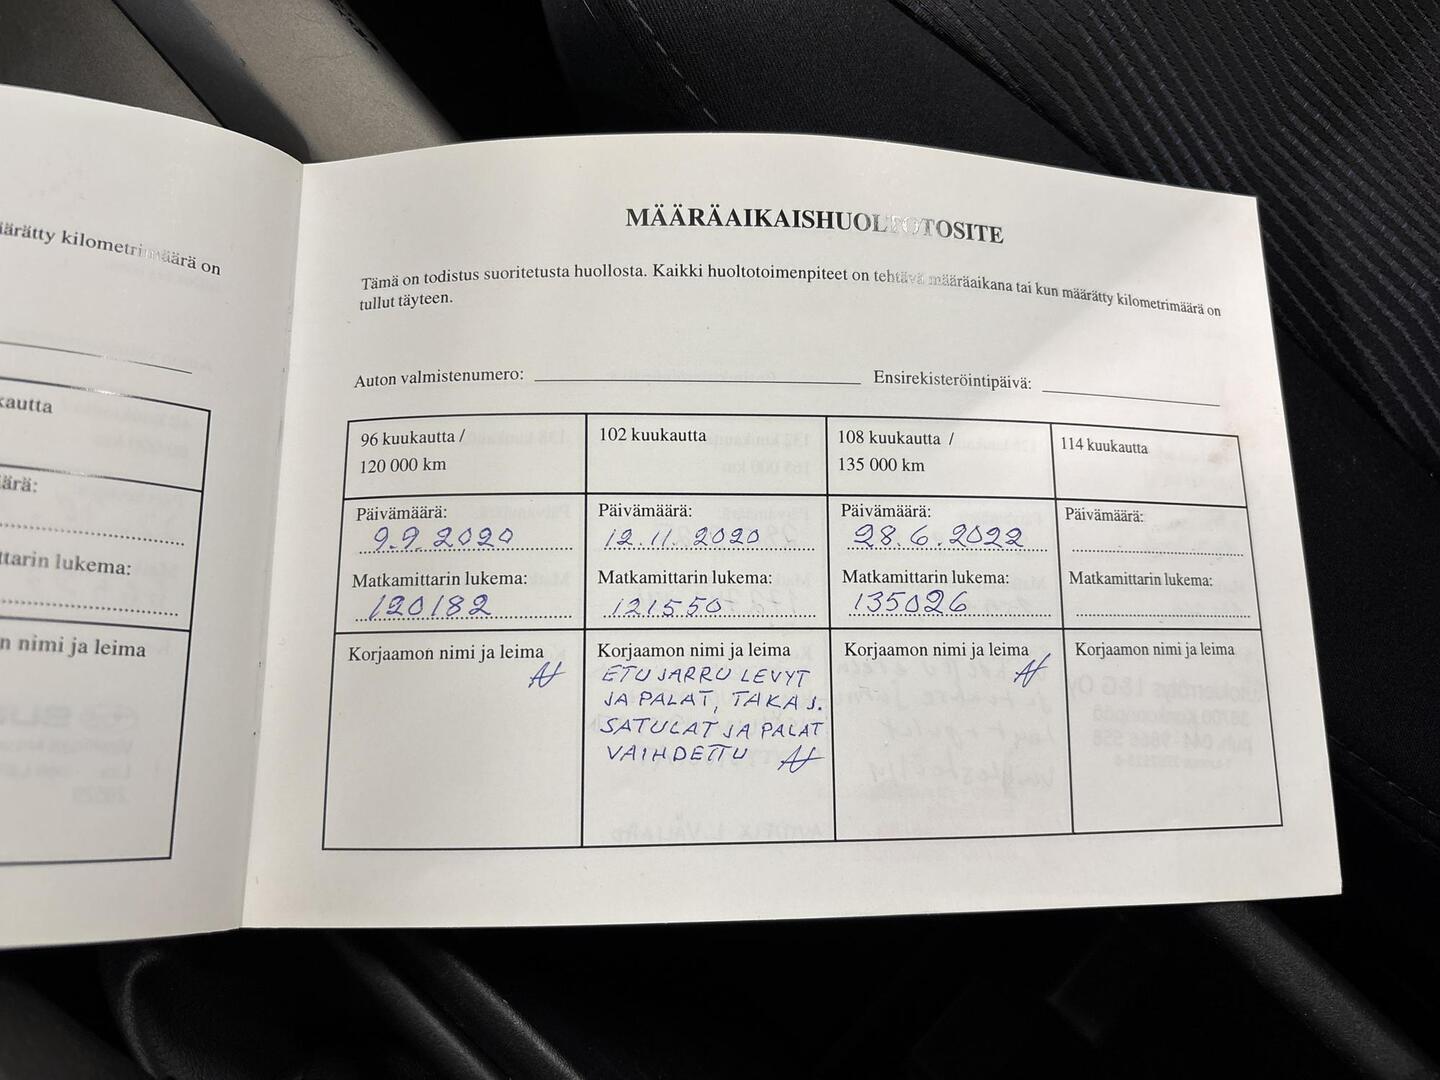 äärätty kilometrimäärä on
kautta
äärä:
ttarin lukema:
n nimi ja leima
MÄÄRÄAIKAISHUOLTOTOSITE
Tämä on todistus suoritetusta huollosta. Kaikki huoltotoimenpiteet on tehtävä määräaikana tai kun määrätty kilometrimäärä on
tullut täyteen.
Auton valmistenumero: Ensirekisteröintipäivä:
96 kuukautta /
120 000 km
Päivämäärä:
9.9.2020
Matkamittarin lukema:
120182
Korjaamon nimi ja leima
102 kuukautta
Päivämäärä:
12.11.2020
Matkamittarin lukema:
121550
Korjaamon nimi ja leima
ETUJARRU LEVYT
JA PALAT, TAKA J.
SATULAT JA PALAT
VAIHDETTU
108 kuukautta /
135 000 km
Päivämäärä:
28.6.2022
Matkamittarin lukema:
135026
Korjaamon nimi ja leima
114 kuukautta
Päivämäärä:
Matkamittarin lukema:
Korjaamon nimi ja leima